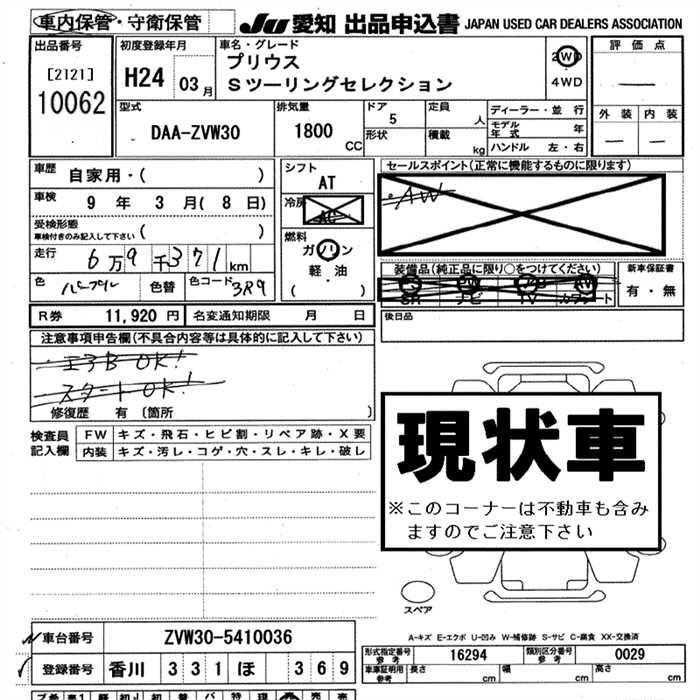 車内保管・守衛保管
JU 愛知 出品申込書 JAPAN USED CAR DEALERS ASSOCIATION
出品番号
[2121]
10062
初度登録年月
H24 03月
車名・グレード
プリウス
Sツーリングセレクション
2WD
4WD
評価点
外装 内装
型式
DAA-ZVW30
排気量
1800 CC
ドア
5
形状
定員 人
積載 kg
ディーラー・並行
モデル年式 年
ハンドル 左・右
車歴 自家用・( )
車検 9年 3月( 8日)
受検形態
車検付きのみ記入して下さい ( )
走行 6万9千371km
色 パープル 色替 色コード 3R9
シフト
AT
冷房
AC
燃料
ガソリン
軽・油
( )
セールスポイント(正常に機能するものに限ります)
・AW
装備品(純正品に限り○をつけてください)
SR ナビ TV カワシート
新車保証書
有・無
R券 11,920円 名変通知期限 月 日
後日品
注意事項申告欄(不具合内容等は具体的に記入して下さい)
エヲB OK!
スタートOK!
修復歴 有 (箇所 )
検査員記入欄
FW キズ・飛石・ヒビ割・リペア跡・X要
内装 キズ・汚レ・コゲ・穴・スレ・キレ・破レ
現状車
※このコーナーは不動車も含み
ますのでご注意下さい
スペア
A-キズ E-エクボ U-凹み W-補修跡 S-サビ C-腐食 XX-交換済
車台番号 ZVW30-5410036
登録番号 香川 331 ほ 369
型式指定番号 参考 16294 類別区分番号 参考 0029
車庫証明用 参考 長さ cm 幅 cm 高さ cm